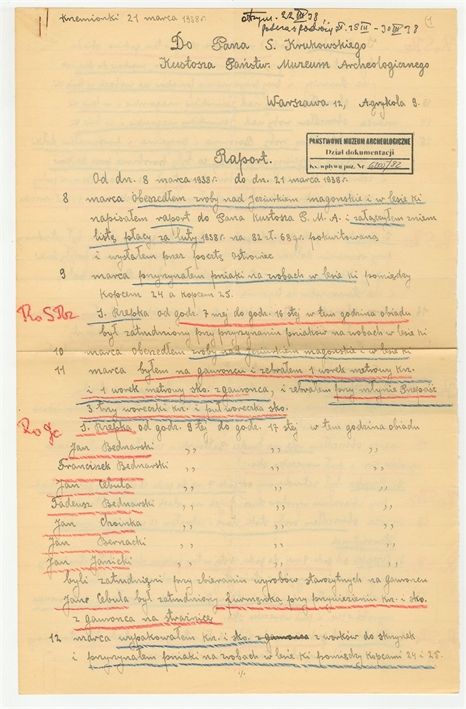 Krzemionki 21 marca 1938r.
otrzym. 22 III 38
(1
Do Pana S. Krukowskiego
Kustosza Państw. Muzeum Archeologicznego
Warszawa 12, Agrykola 9.
PAŃSTWOWE MUZEUM ARCHEOLOGICZNE
Dział dokumentacji
Ks. wpływu poz. Nr
Raport.
Od dn. 8 marca 1938r. do dn. 21 marca 1938r.
8 marca obeszedłem zroby nad Jeziurkiem magońskie i w lesie ki
napisałem raport do Pana Kustosza P. M. A. i załączyłem z niem
listę płacy za luty 1938r na 82 zł. 68 gr. pokwitowaną
i wysłałem przez pocztę Ostrowiec
9 marca przyrzynałem pniaki na zrobach w lesie ki pomiędzy
Kopcem 24 a Kopcem 25.
S. Rzepka od godz. 7 mej do godz. 16 stej w tem godzina obiadu
był zatrudniony przy przyrzynaniu pniaków na zrobach w lesie ki
10 marca obeszedłem zroby nad Jeziurkiem magońskie i w lesie ki
11 marca byłem na gawroncu i zebrałem 1 worek metrowy krz.
i 1 worek metrowy sko. z gawronca, i zebrałem przy młynie Przepaść
3 trzy woreczki krz. i pul woreczka sko.
S. Rzepka od godz. 8 tej do godz. 17 stej w tem godzina obiadu
Jan Bednarski ,, ,, ,,
Franciszek Bednarski ,, ,, ,,
Jan Cebula ,, ,, ,,
Tadeusz Bednarski ,, ,, ,,
Jan Choinka ,, ,, ,,
Jan Bernacki ,, ,, ,,
Jan Janicki ,, ,, ,,
byli zatrudnieni przy zbieraniu wyrobów starożytnych na gawroncu
Jan Cebula był zatrudniony furmanką przy przywiezieniu krz. i sko.
z gawronca na strażnicę
12 marca wypakowałem krz. i sko. z gawronca z worków do skrzynek
i przyrzynałem pniaki na zrobach w lesie ki pomiędzy kopcami 24 i 25.